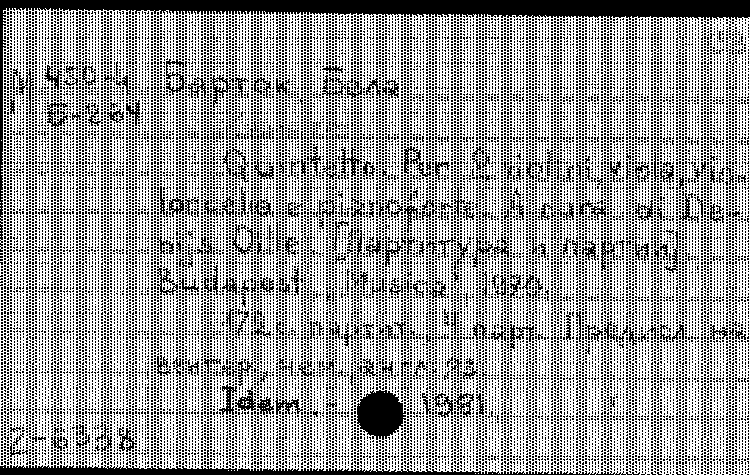 М 430-4 Барток Бела
Б-264
Quintetto. Per 2 violini, viola, vio-
loncello e pianoforte. A cura di De-
nijs Dille. [Партитура и партии]
Budapest, "Musica" 1970.
172 с. партит. 4 парт. Предисл. на
венгер., нем., англ. яз.
Idem. - 1981.